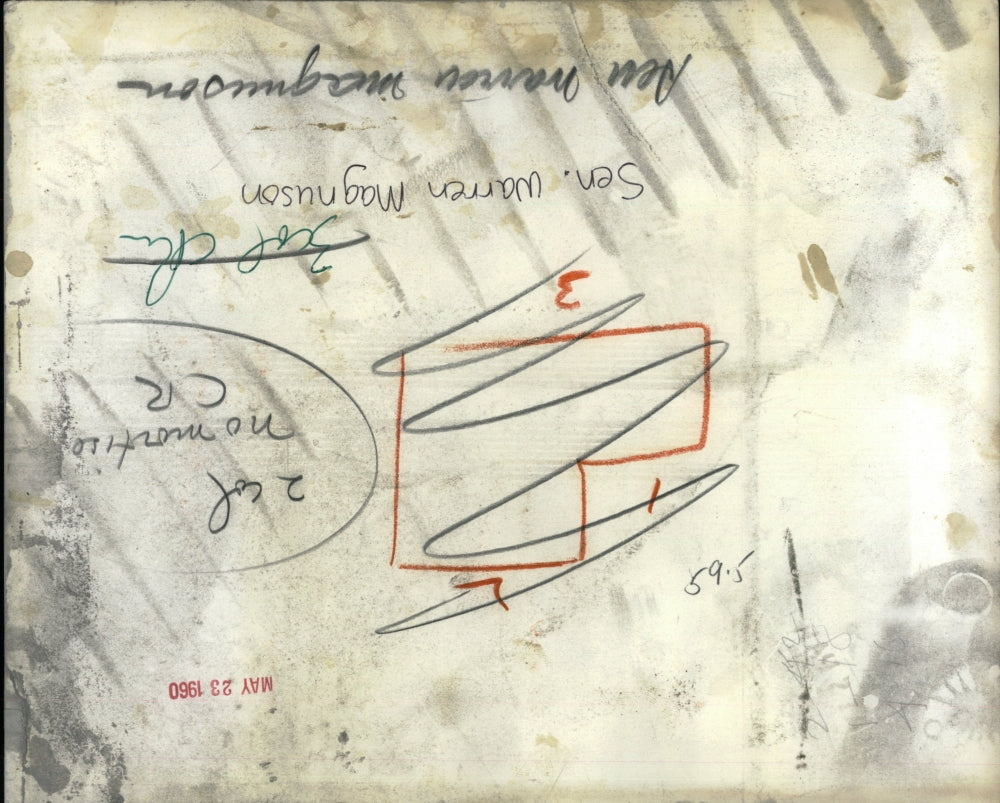 MAY 23 1960
59.5
2
1
2 col
no mortise
CR
3
3 col
Sen. Warren Magnuson
Sen Warren Magnuson